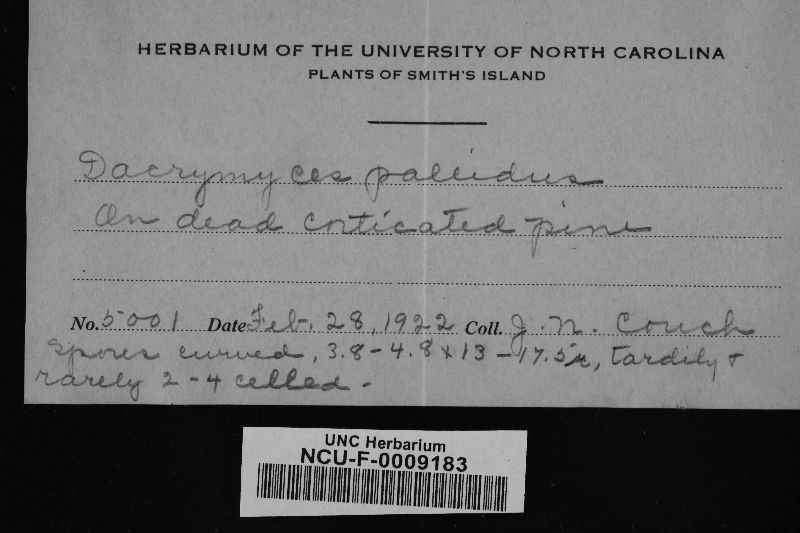 HERBARIUM OF THE UNIVERSITY OF NORTH CAROLINA
PLANTS OF SMITH'S ISLAND
Dacrymyces pallidus
On dead corticated pine
No. 5001 Date Feb. 28, 1922 Coll. J. N. Couch
Spores curved, 3.8-4.8 x 13-17.5µ, tardily +
rarely 2-4 celled.
UNC Herbarium
NCU-F-0009183